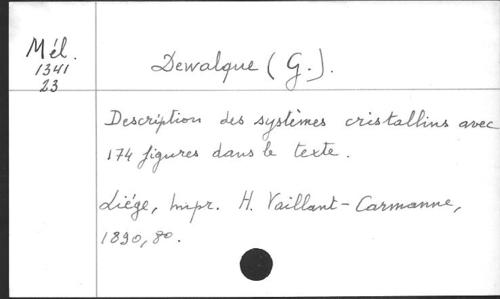 Mél.
1341
23
Dewalque (G.).
Description des systèmes cristallins avec
174 figures dans le texte.
Liége, Impr. H. Vaillant-Carmanne,
1890, 8o.